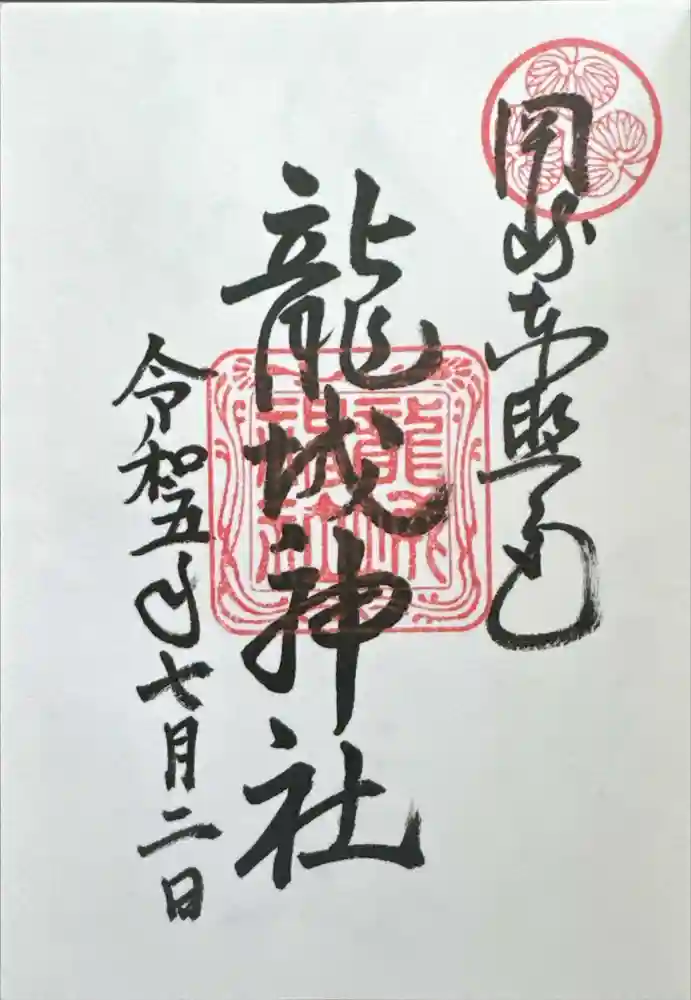 岡崎東照宮
龍城神社
龍城
神社
令和五年七月二日